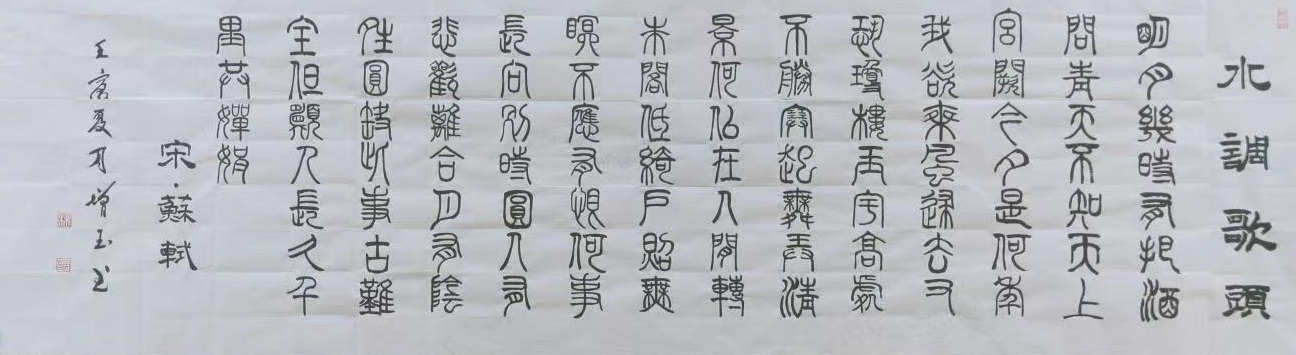 水調歌頭
明月幾時有把酒
問青天不知天上
宮闕今夕是何年
我欲乘風歸去又
恐瓊樓玉宇高處
不勝寒起舞弄清
景何似在人間轉
朱閣低綺戶照無
眠不應有恨何事
長向別時圓人有
悲歡離合月有陰
晴圓缺此事古難
全但願人長久千
里共嬋娟
宋·蘇軾
壬寅夏月增玉書